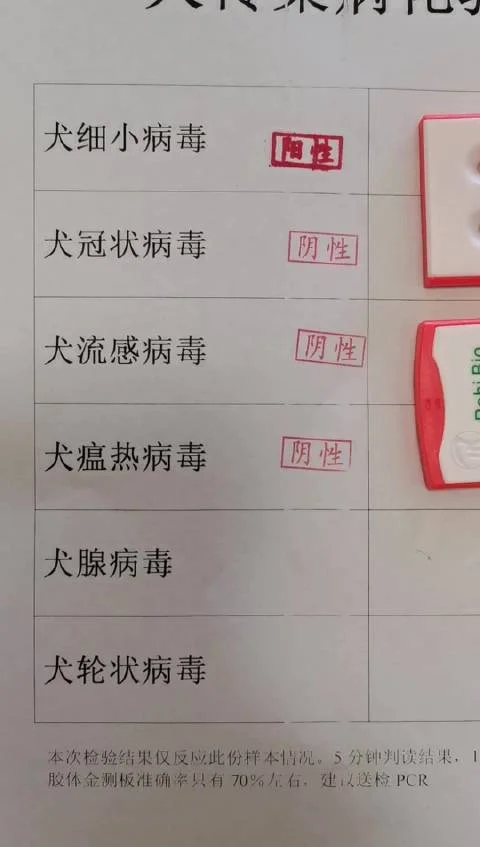 犬传染病化验
犬细小病毒 阳性
犬冠状病毒 阴性
犬流感病毒 阴性
犬瘟热病毒 阴性
犬腺病毒
犬轮状病毒
本次检验结果仅反应此份样本情况。5 分钟判读结果，1
胶体金测板准确率只有 70%左右，建议送检 PCR